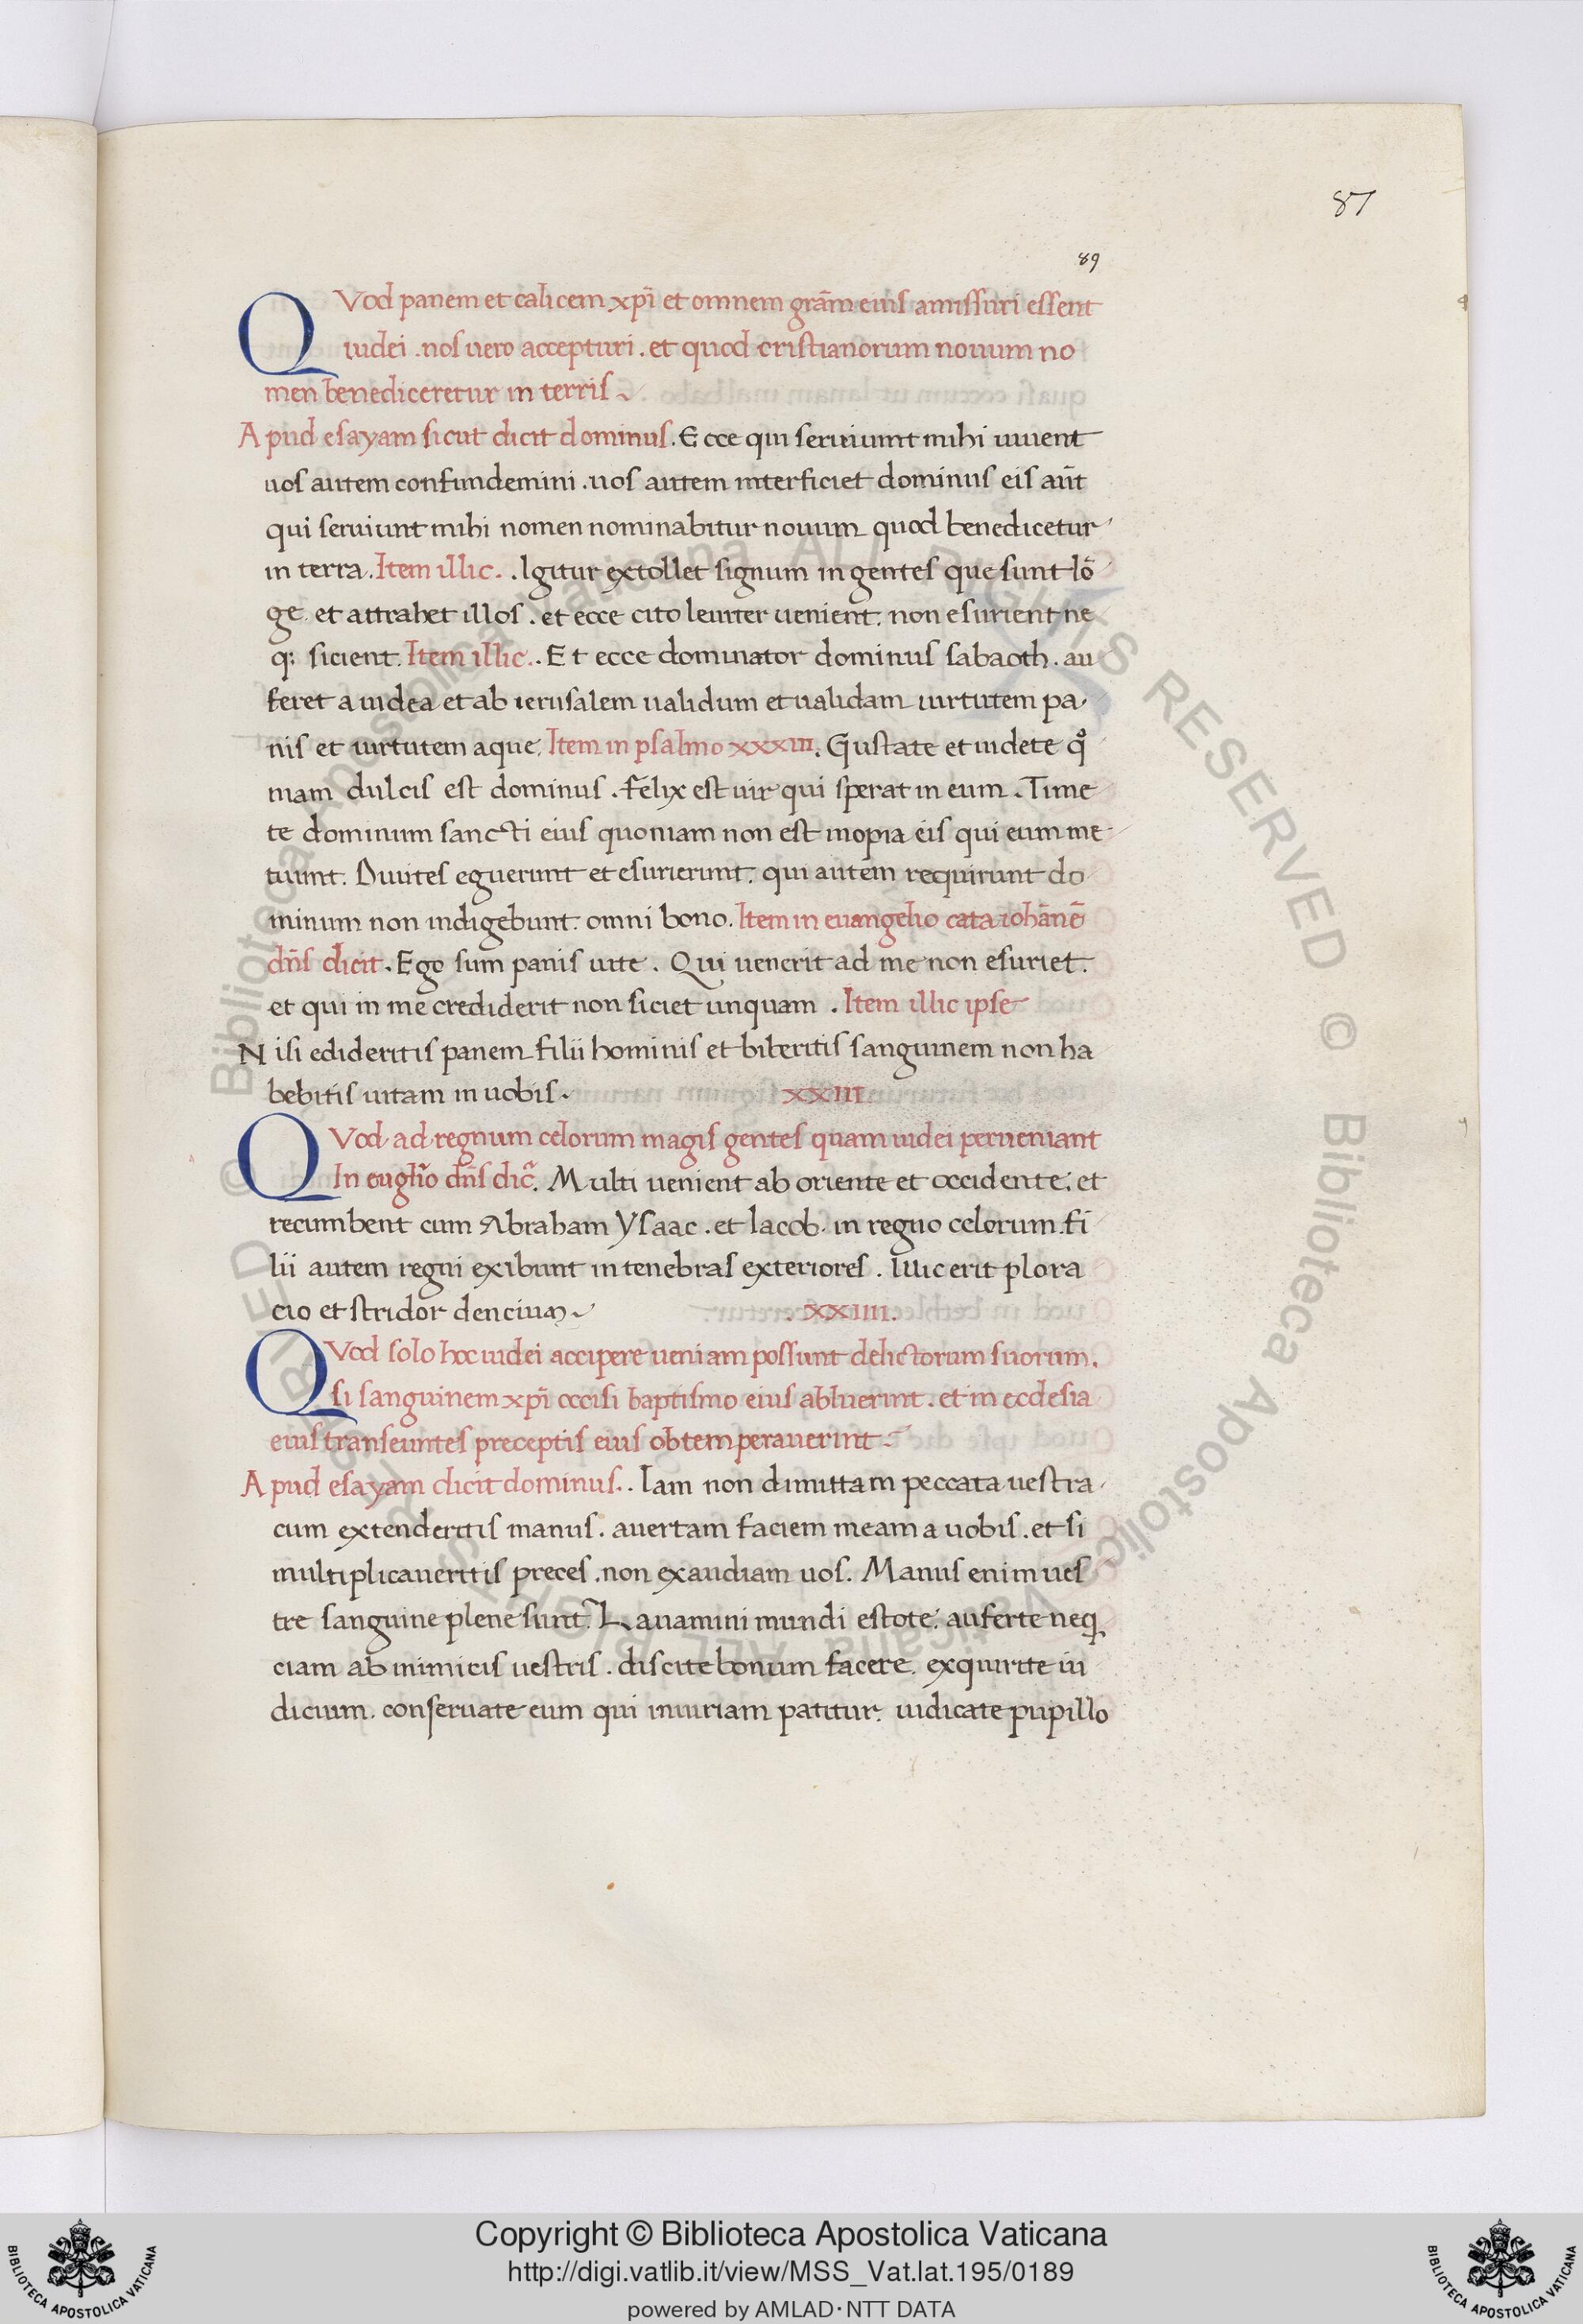 87
89
QVod panem et calicem xp̄i et omnem grām eius amissuri essent
iudei . nos uero accepturi . et quod cristianorum nouum no
men benediceretur in terris
Apud esayam sicut dicit dominus. Ecce qui seruiunt mihi uiuent
uos autem confundemini . uos autem interficiet dominus eis aūt
qui seruiunt mihi nomen nominabitur nouum quod benedicetur
in terra. Item illic. . Igitur extollet signum in gentes que sunt lō
ge. et attrahet illos . et ecce cito leuiter uenient. non esurient ne
q; sicient. Item illic. . Et ecce dominator dominus sabaoth . au
feret a iudea et ab ierusalem ualidum et ualidam uirtutem pa
nis et uirtutem aque. Item in psalmo xxxIII. Gustate et uidete qͦ
niam dulcis est dominus . Felix est uir qui sperat in eum . Time
te dominum sancti eius quoniam non est inopia eis qui eum me
tuunt. Diuites eguerunt et esurierunt. qui autem requirunt do
minum non indigebunt. omni bono. Item in euangelio cata iohānē
dn̄s dicit. Ego sum panis uite . Qui uenerit ad me non esuriet.
et qui in me crediderit non siciet unquam . Item illic ipse
Nisi edideritis panem filii hominis et biberitis sanguinem non ha
bebitis uitam in uobis. xxIII
QVod ad regnum celorum magis gentes quam iudei perueniant
In euglīo dn̄s dic̄. Multi uenient ab oriente et occidente; et
recumbent cum Abraham Ysaac . et Iacob in regno celorum. fi
lii autem regni exibunt in tenebras exteriores . Illic erit plora
cio et stridor dencium . XXIIII.
QVod solo hoc iudei accipere ueniam possunt delictorum suorum.
si sanguinem xp̄i occisi baptismo eius abluerint . et in ecclesia
eius transeuntes preceptis eius obtemperauerint
Apud esayam dicit dominus. . Iam non dimittam peccata uestra
cum extenderitis manus . auertam faciem meam a uobis . et si
multiplicaueritis preces . non exaudiam uos. Manus enim ues
tre sanguine plene sunt. Lauamini mundi estote. auferte neq
ciam ab inimicis uestris . discite bonum facere. exquirite iu
dicium. conseruate eum qui iniuriam patitur. iudicate pupillo
© Biblioteca Apostolica Vaticana ALL RIGHTS RESERVED © Biblioteca Apostolica Vaticana ALL RIGHTS RESERVED
Copyright © Biblioteca Apostolica Vaticana
http://digi.vatlib.it/view/MSS_Vat.lat.195/0189
powered by AMLAD·NTT DATA
BIBLIOTECA APOSTOLICA VATICANA
BIBLIOTECA APOSTOLICA VATICANA